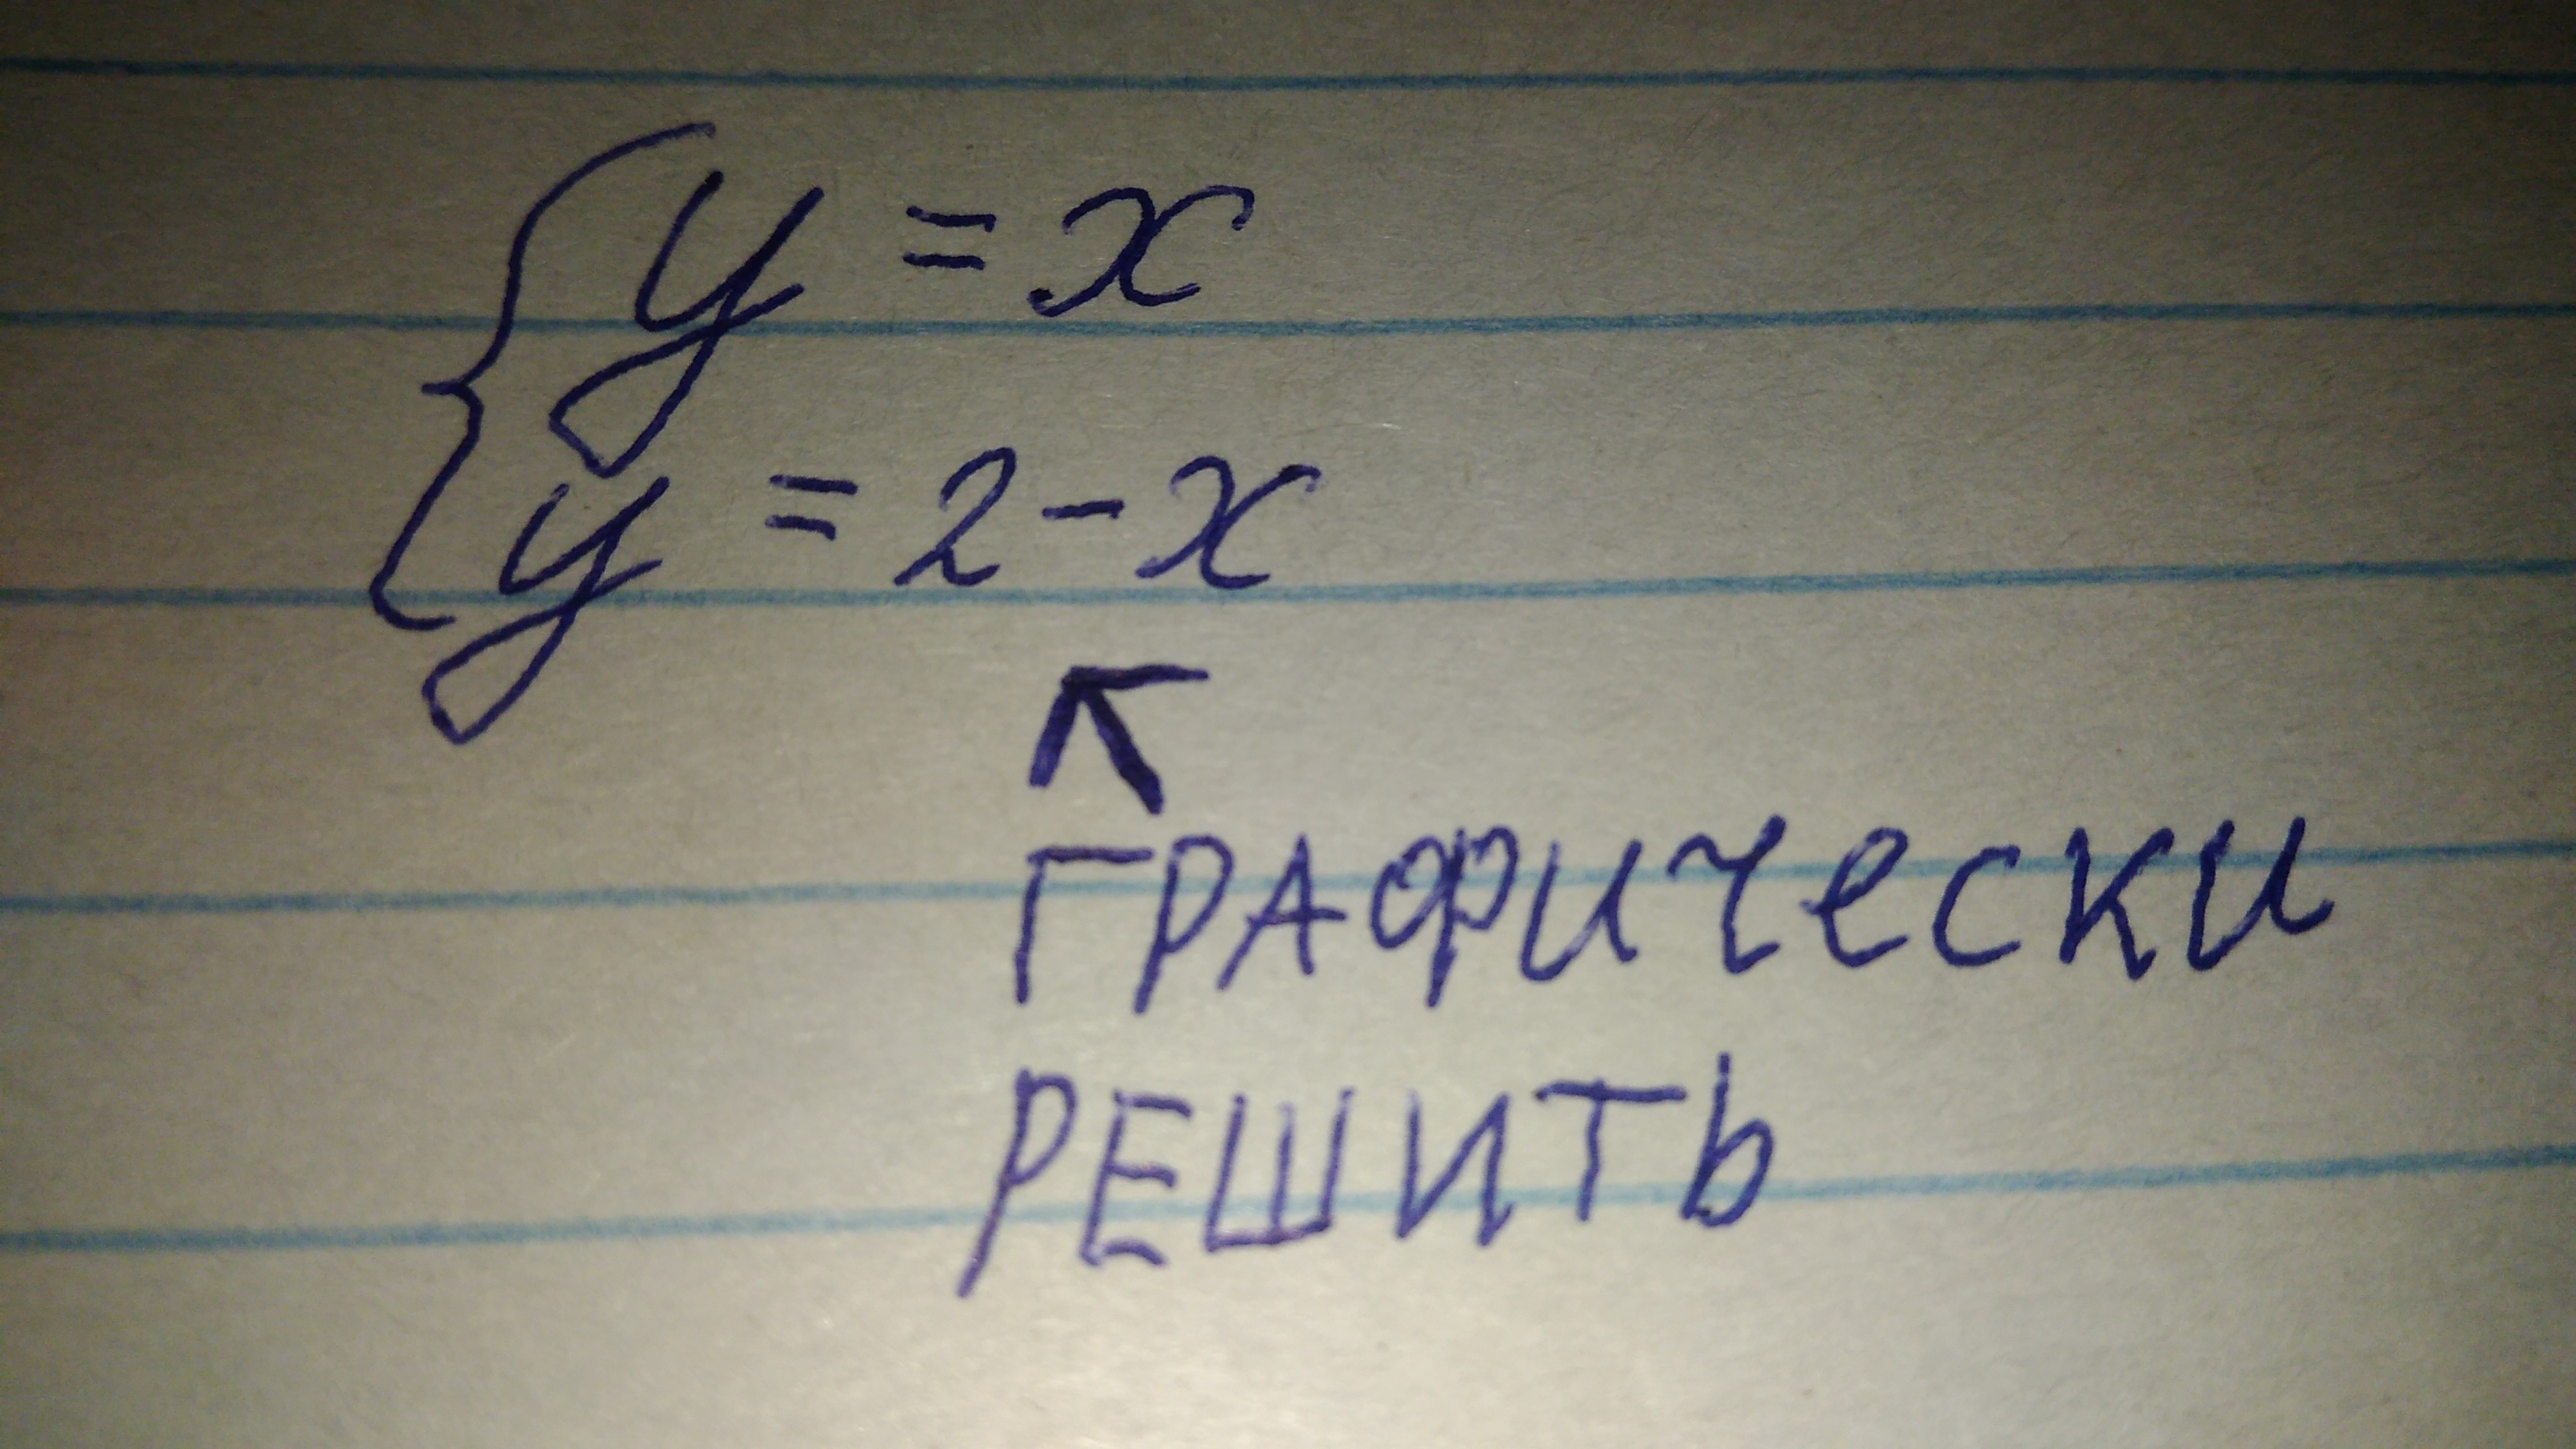 { y = x
y = 2 - x
ГРАФически
РЕШИТЬ